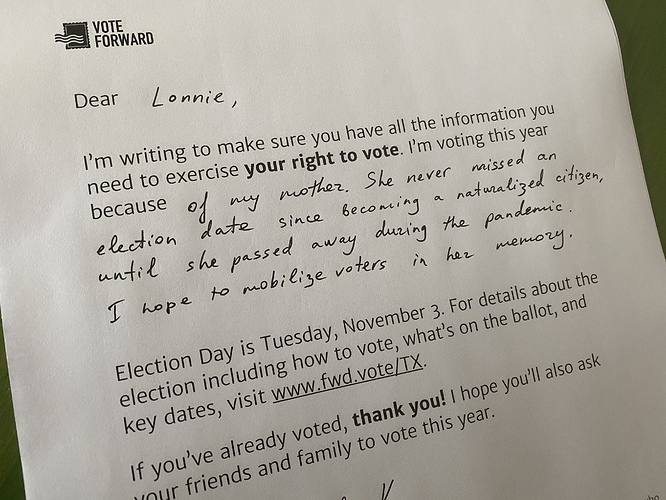 VOTE
FORWARD
Dear Lonnie,
I'm writing to make sure you have all the information you
need to exercise your right to vote. I'm voting this year
because of my mother. She never missed an
election date since becoming a naturalized citizen,
until she passed away during the pandemic.
I hope to mobilize voters in her memory.
Election Day is Tuesday, November 3. For details about the
election including how to vote, what's on the ballot, and
key dates, visit www.fwd.vote/TX.
If you've already voted, thank you! I hope you'll also ask
your friends and family to vote this year.